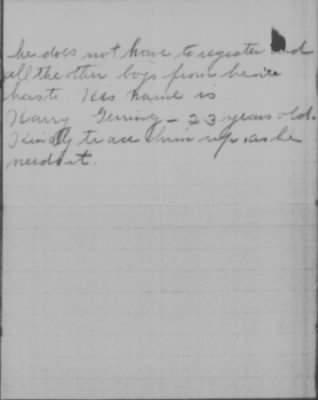 he does not have to register and
all the other boys from here
has to His name is
Harry Gerring - 23 years old.
Kindly trace him up as he
needs it.